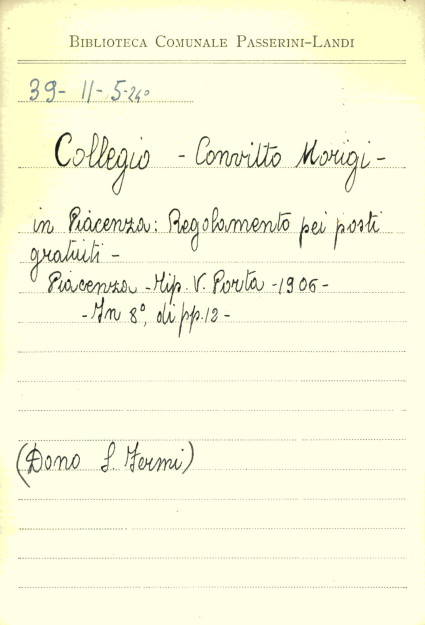 BIBLIOTECA COMUNALE PASSERINI-LANDI
39- 11- 5-24°
Collegio - Convitto Morigi -
in Piacenza: Regolamento pei posti
gratuiti -
Piacenza - Tip. V. Porta - 1906 -
- In 8°, di pp. 12 -
(Dono S. Fermi)